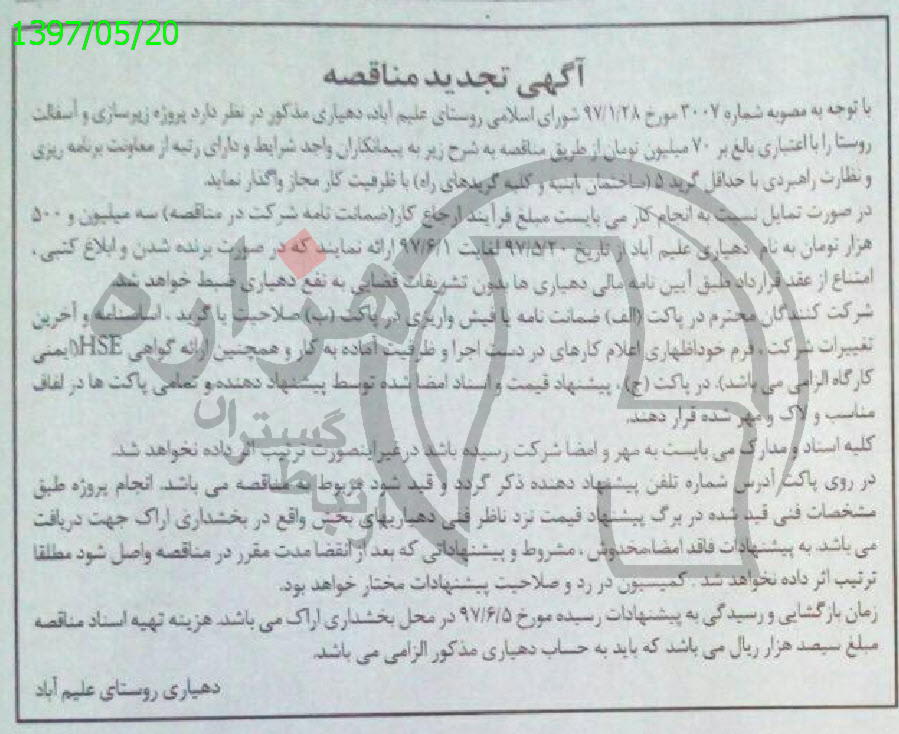 1397/05/20
آگهی تجدید مناقصه
با توجه به مصوبه شماره ۳۰۰۷ مورخ ۹۷/۱/۲۸ شورای اسلامی روستای علیم آباد، دهیاری مذکور در نظر دارد پروژه زیرسازی و آسفالت
روستا را با اعتباری بالغ بر ۷۰ میلیون تومان از طریق مناقصه به شرح زیر به پیمانکاران واجد شرایط و دارای رتبه از معاونت برنامه ریزی
و نظارت راهبردی با حداقل گرید ۵ (ساختمان ،ابنیه و کلیه گریدهای راه) با ظرفیت کار مجاز واگذار نماید.
در صورت تمایل نسبت به انجام کار می بایست مبلغ فرآیند ارجاع کار(ضمانت نامه شرکت در مناقصه) سه میلیون و ۵۰۰
هزار تومان به نام دهیاری علیم آباد از تاریخ ۹۷/۵/۲۰ لغایت ۹۷/۶/۱ ارائه نمایند که در صورت برنده شدن و ابلاغ کتبی ،
امتناع از عقد قرارداد طبق آیین نامه مالی دهیاری ها بدون تشریفات قضایی به نفع دهیاری ضبط خواهد شد.
شرکت کنندگان محترم در پاکت (الف) ضمانت نامه یا فیش واریزی در پاکت (ب) صلاحیت یا گرید ، اساسنامه و آخرین
تغییرات شرکت ، فرم خوداظهاری اعلام کارهای در دست اجرا و ظرفیت آماده به کار و همچنین ارائه گواهی HSE(ایمنی
کارگاه الزامی می باشد). در پاکت (ج) ، پیشنهاد قیمت و اسناد امضا شده توسط پیشنهاد دهنده و تمامی پاکت ها در لفاف
مناسب و لاک و مهر شده قرار دهند.
کلیه اسناد و مدارک می بایست به مهر و امضا شرکت رسیده باشد درغیراینصورت ترتیب اثر داده نخواهد شد.
در روی پاکت آدرس شماره تلفن پیشنهاد دهنده ذکر گردد و قید شود مربوط به مناقصه می باشد. انجام پروژه طبق
مشخصات فنی قید شده در برگ پیشنهاد قیمت نزد ناظر فنی دهیاریهای بخش واقع در بخشداری اراک جهت دریافت
می باشد. به پیشنهادات فاقد امضا،مخدوش ، مشروط و پیشنهاداتی که بعد از انقضا مدت مقرر در مناقصه واصل شود مطلقا
ترتیب اثر داده نخواهد شد . کمیسیون در رد و صلاحیت پیشنهادات مختار خواهد بود.
زمان بازگشایی و رسیدگی به پیشنهادات رسیده مورخ ۹۷/۶/۵ در محل بخشداری اراک می باشد. هزینه تهیه اسناد مناقصه
مبلغ سیصد هزار ریال می باشد که باید به حساب دهیاری مذکور الزامی می باشد.
دهیاری روستای علیم آباد
هزاره
گستران